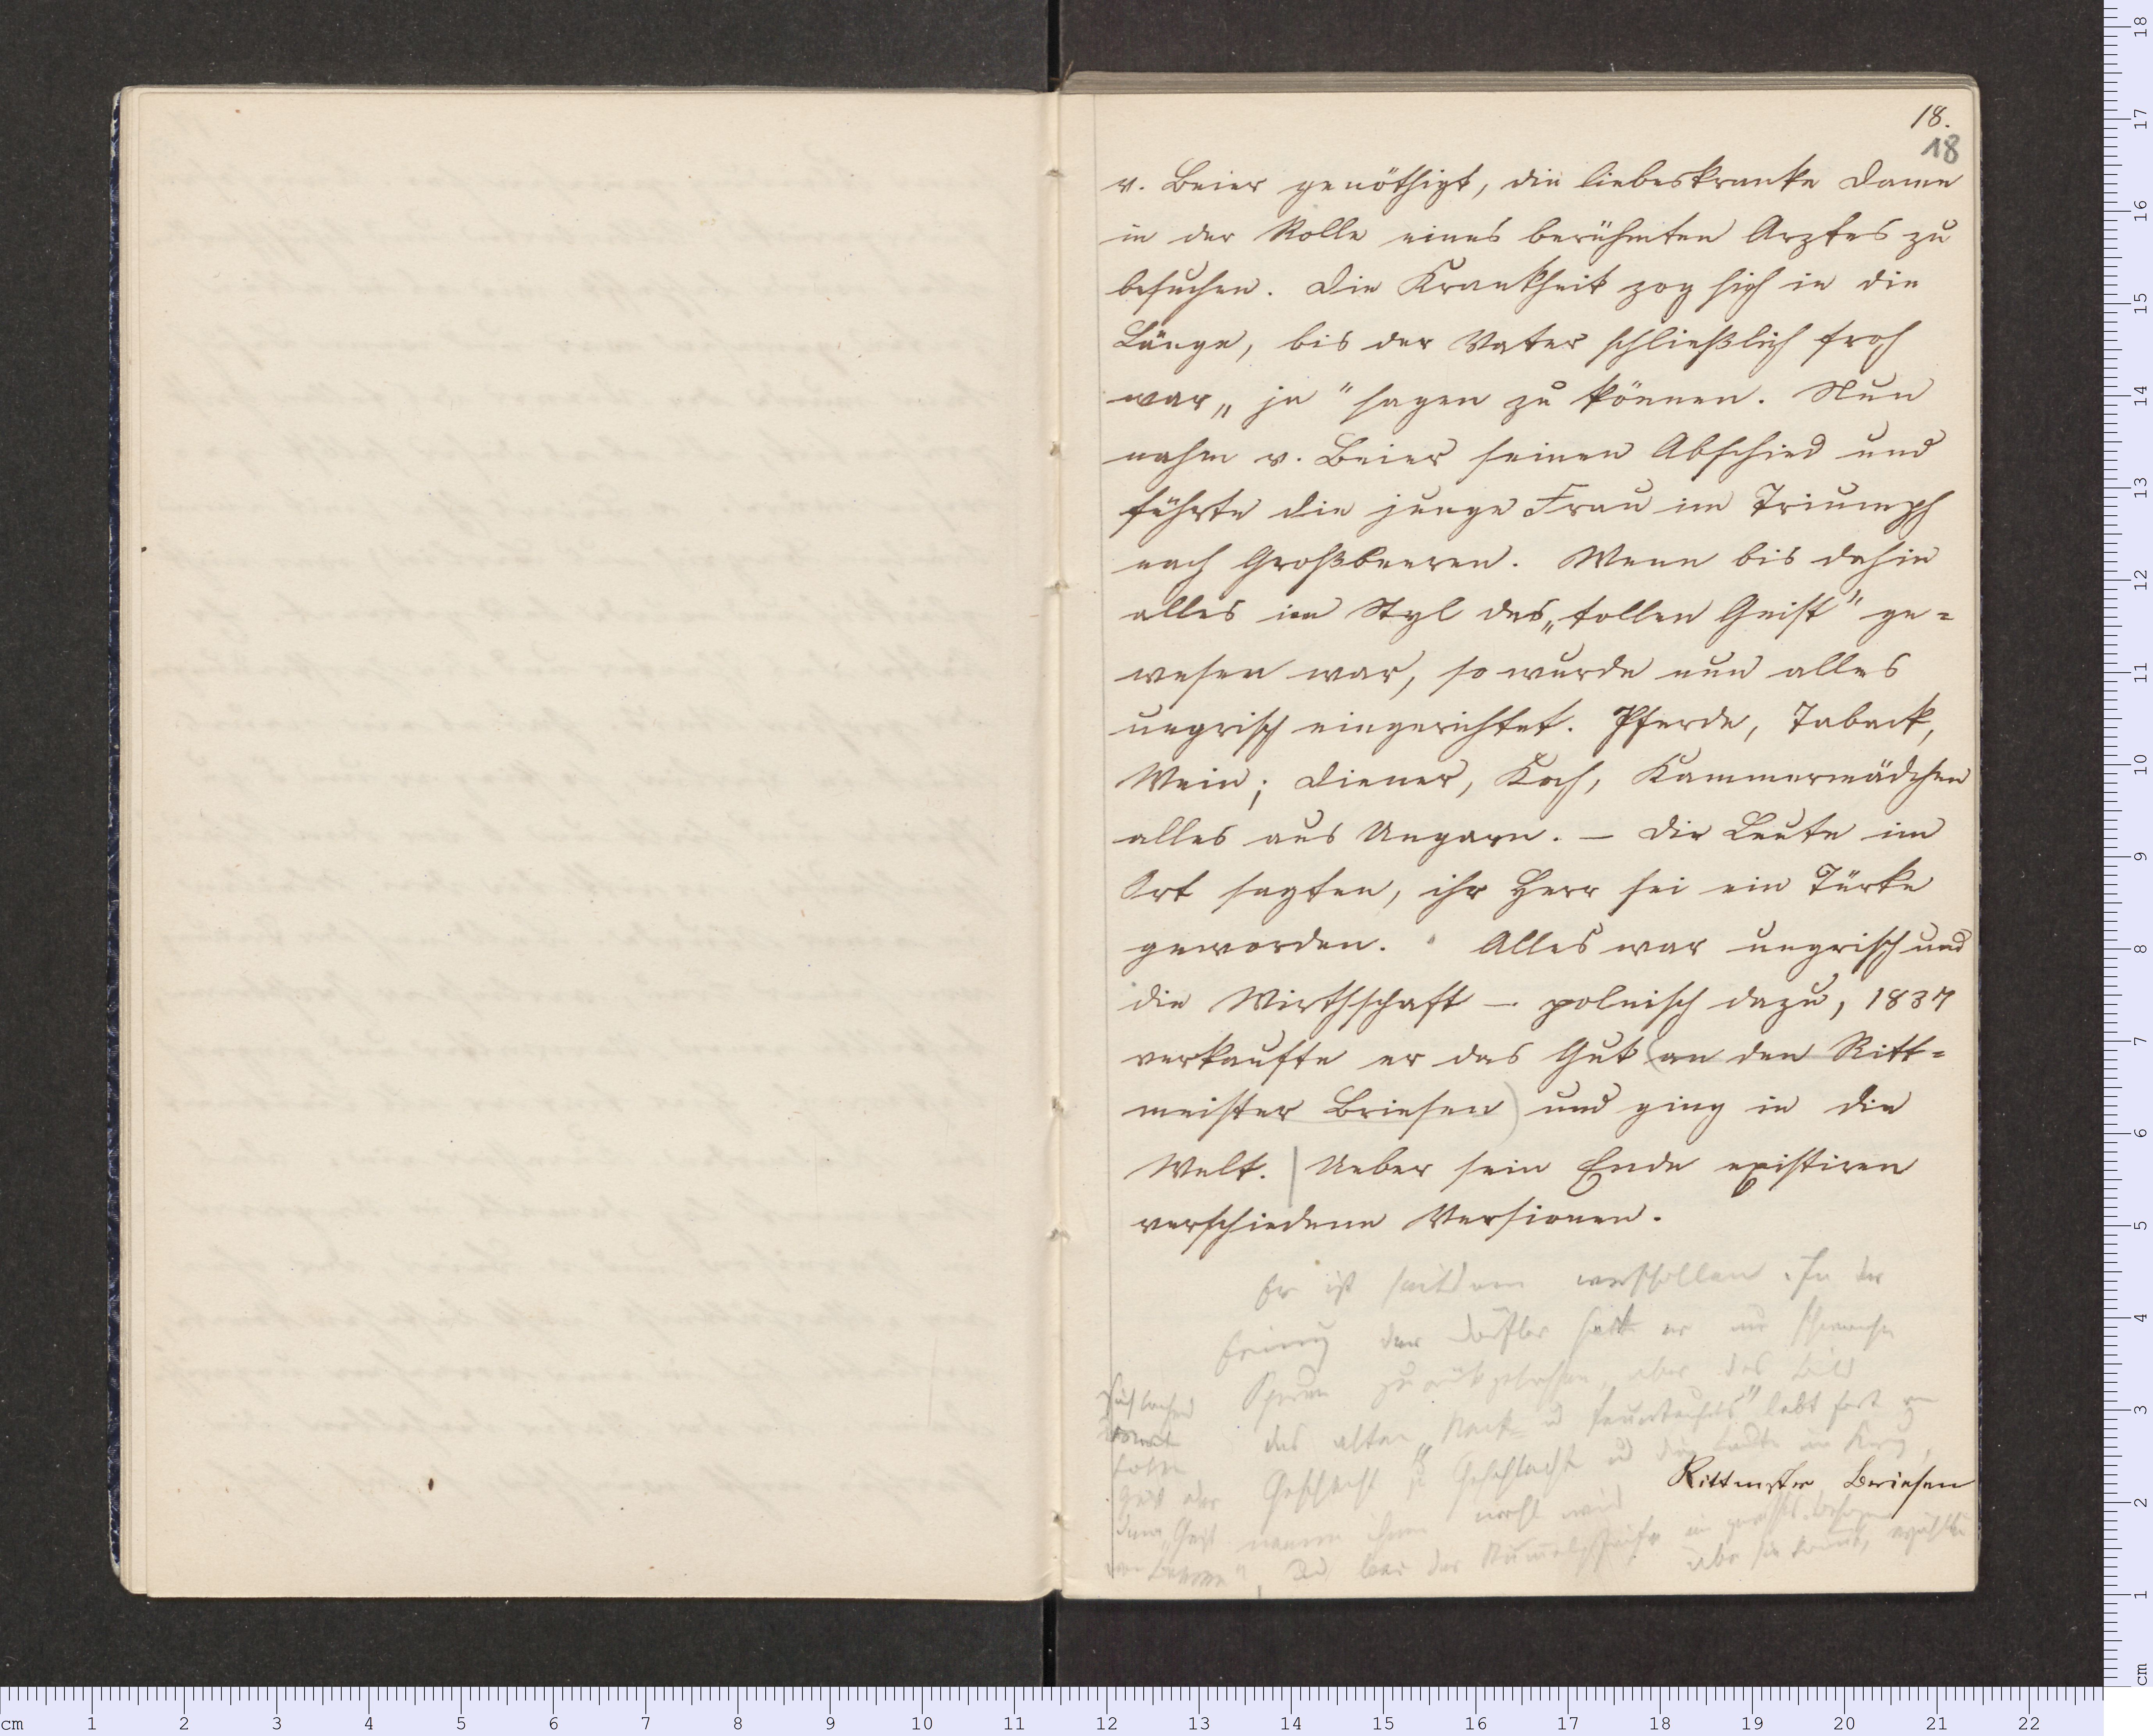 18.
18
v. Beier genöthigt, die liebeskranke Dame
in der Rolle eines berühmten Arztes zu
besuchen. Die Krankheit zog sich in die
Länge, bis der Vater schließlich froh
war „ja" sagen zu können. Nun
nahm v. Beier seinen Abschied und
führte die junge Frau im Triumph
nach Großbeeren. Wenn bis dahin
alles im Styl des „tollen Geist" ge=
wesen war, so wurde nun alles
ungrisch eingerichtet. Pferde, Taback,
Wein; Diener, Koch, Kammermädchen
alles aus Ungarn. – Die Leute im
Ort sagten, ihr Herr sei ein Türke
geworden. Alles war ungrisch und
die Wirthschaft – polnisch dazu, 1837
verkaufte er das Gut (an den Ritt=
meister Briesen) und ging in die
Welt. | Ueber sein Ende existiren
verschiedene Versionen.
Er ist seitdem verschollen. In der
der Dörfler hat er nur schwache
Spuren zurückgelassen, aber das Bild
des alten „ Teufels" lebt fort von
Geschlecht zu Geschlecht und die Leute im Krug,
Rittmster Briesen